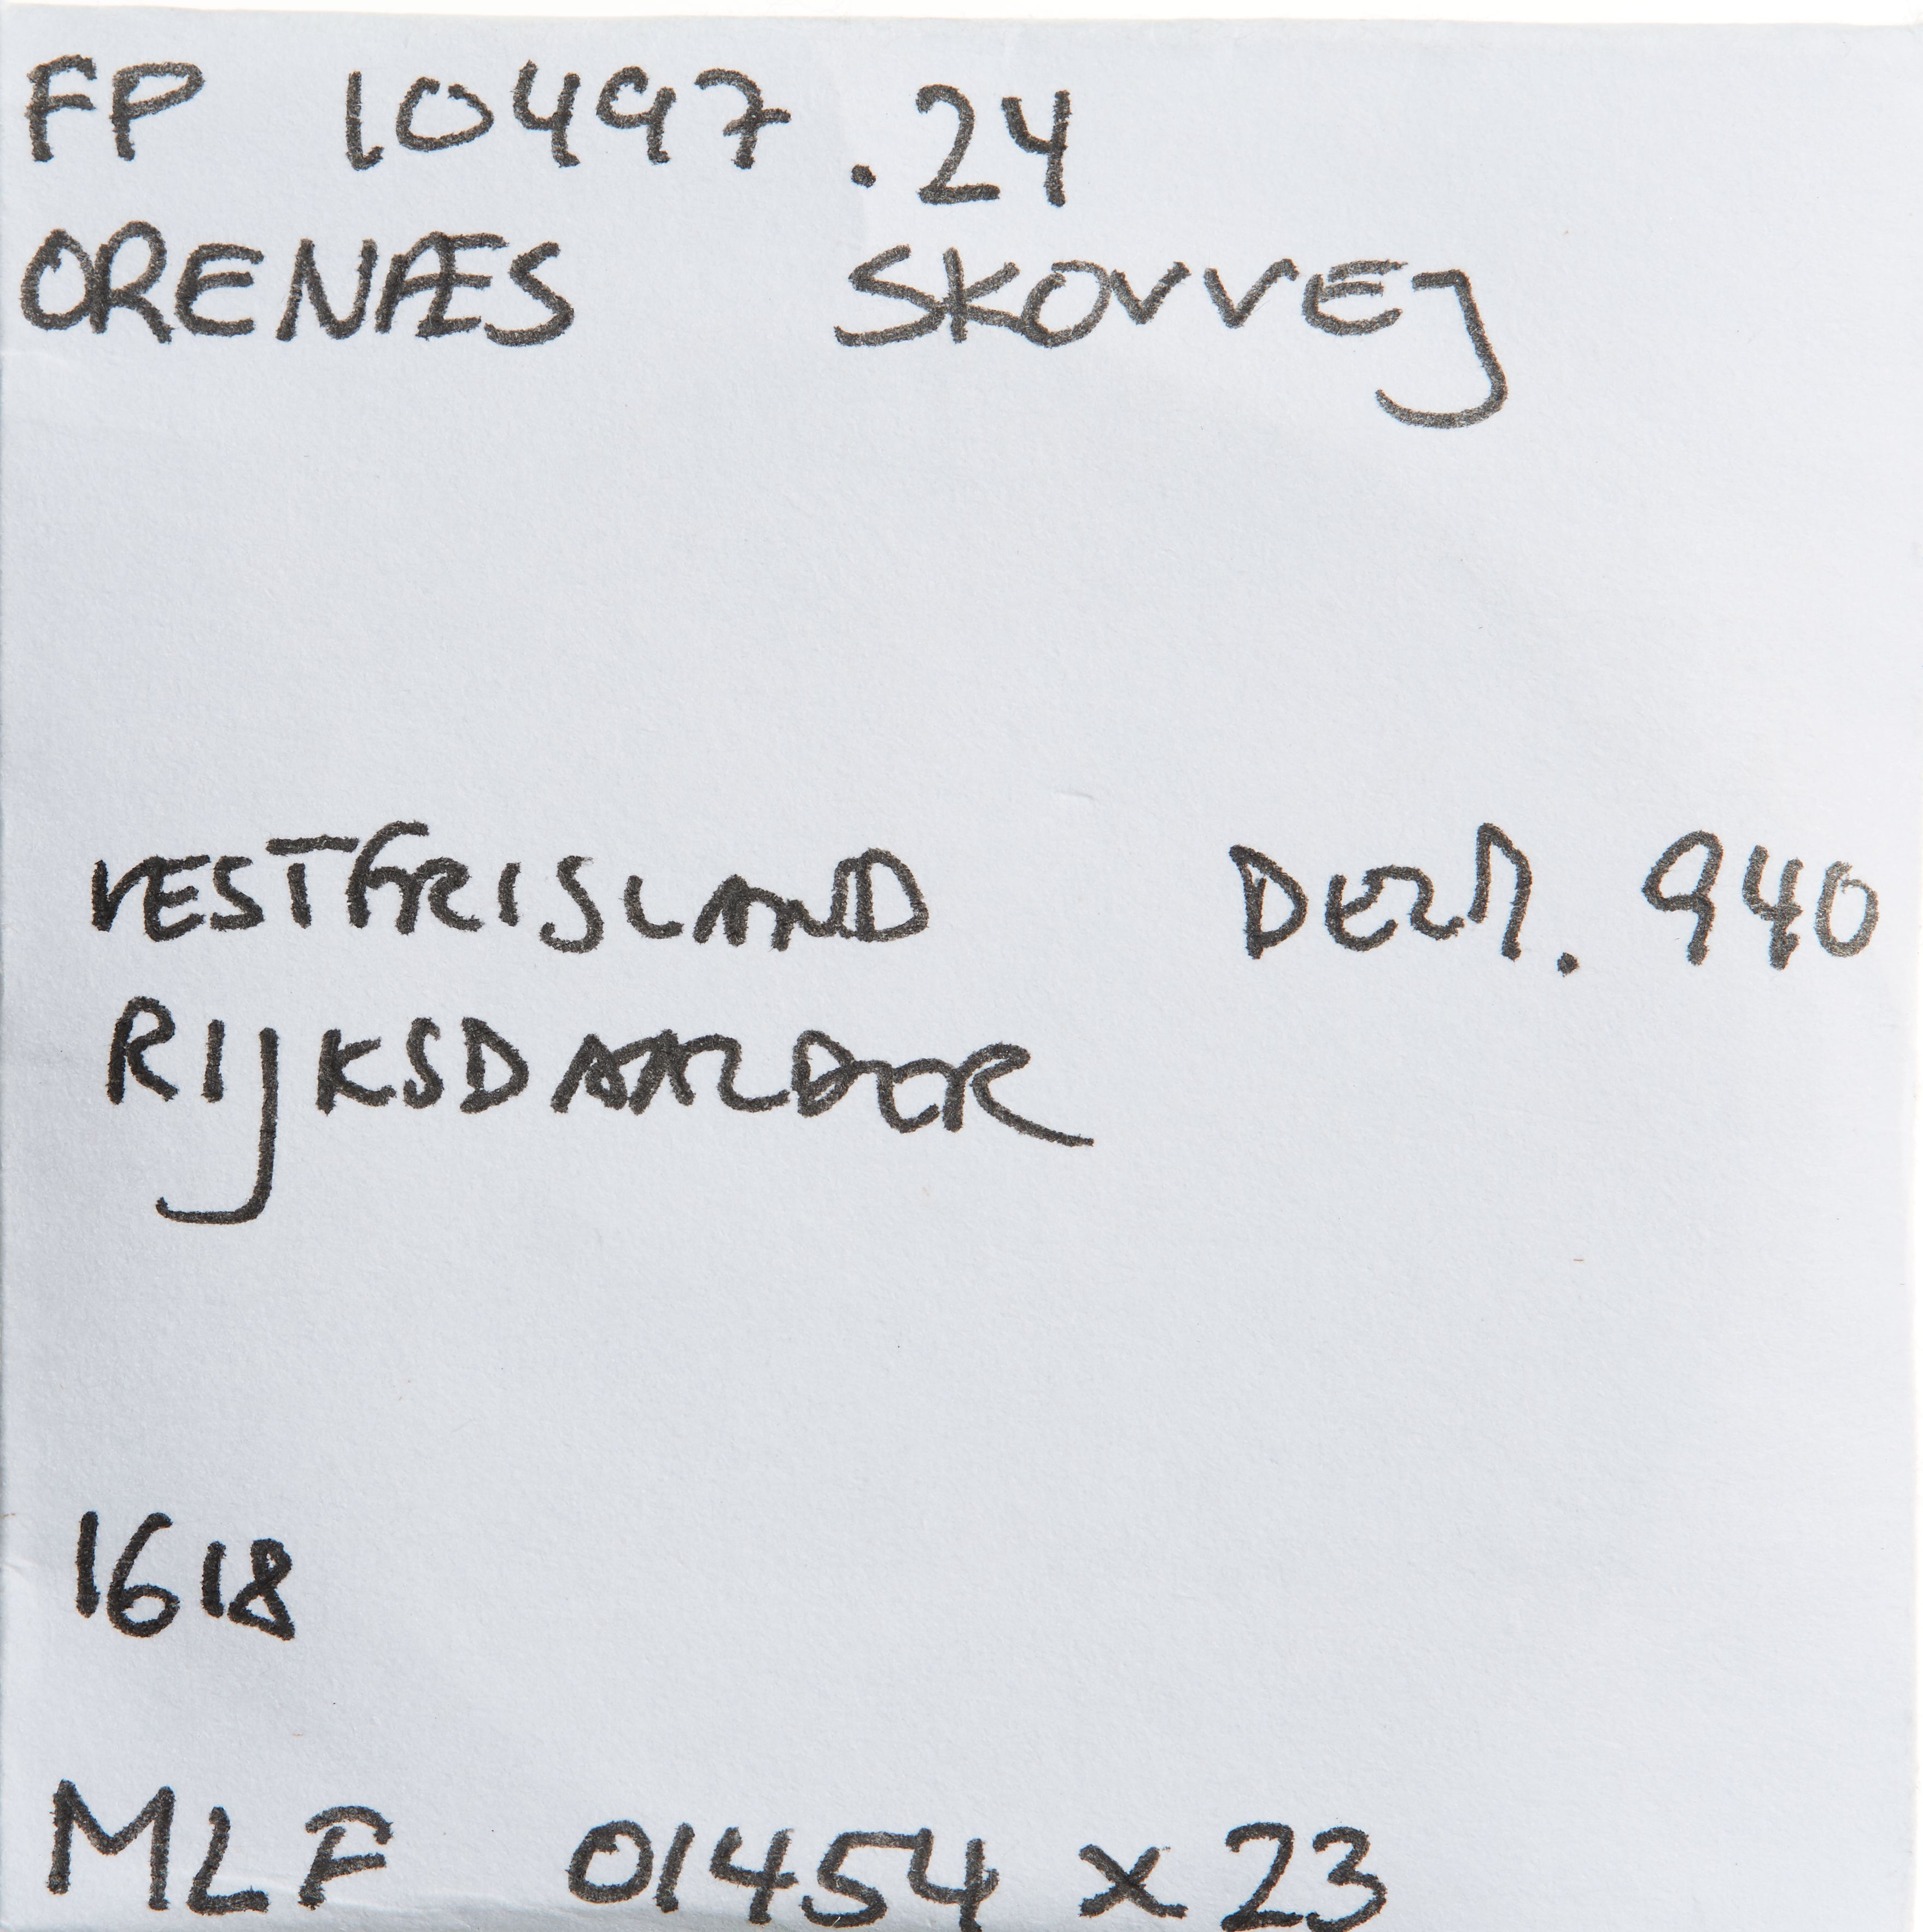 FP 10497.24
ORENÆS SKOVVEJ
VESTFRISLAND DELM. 940
RIJKSDAALDER
1618
MLF 01454 x 23